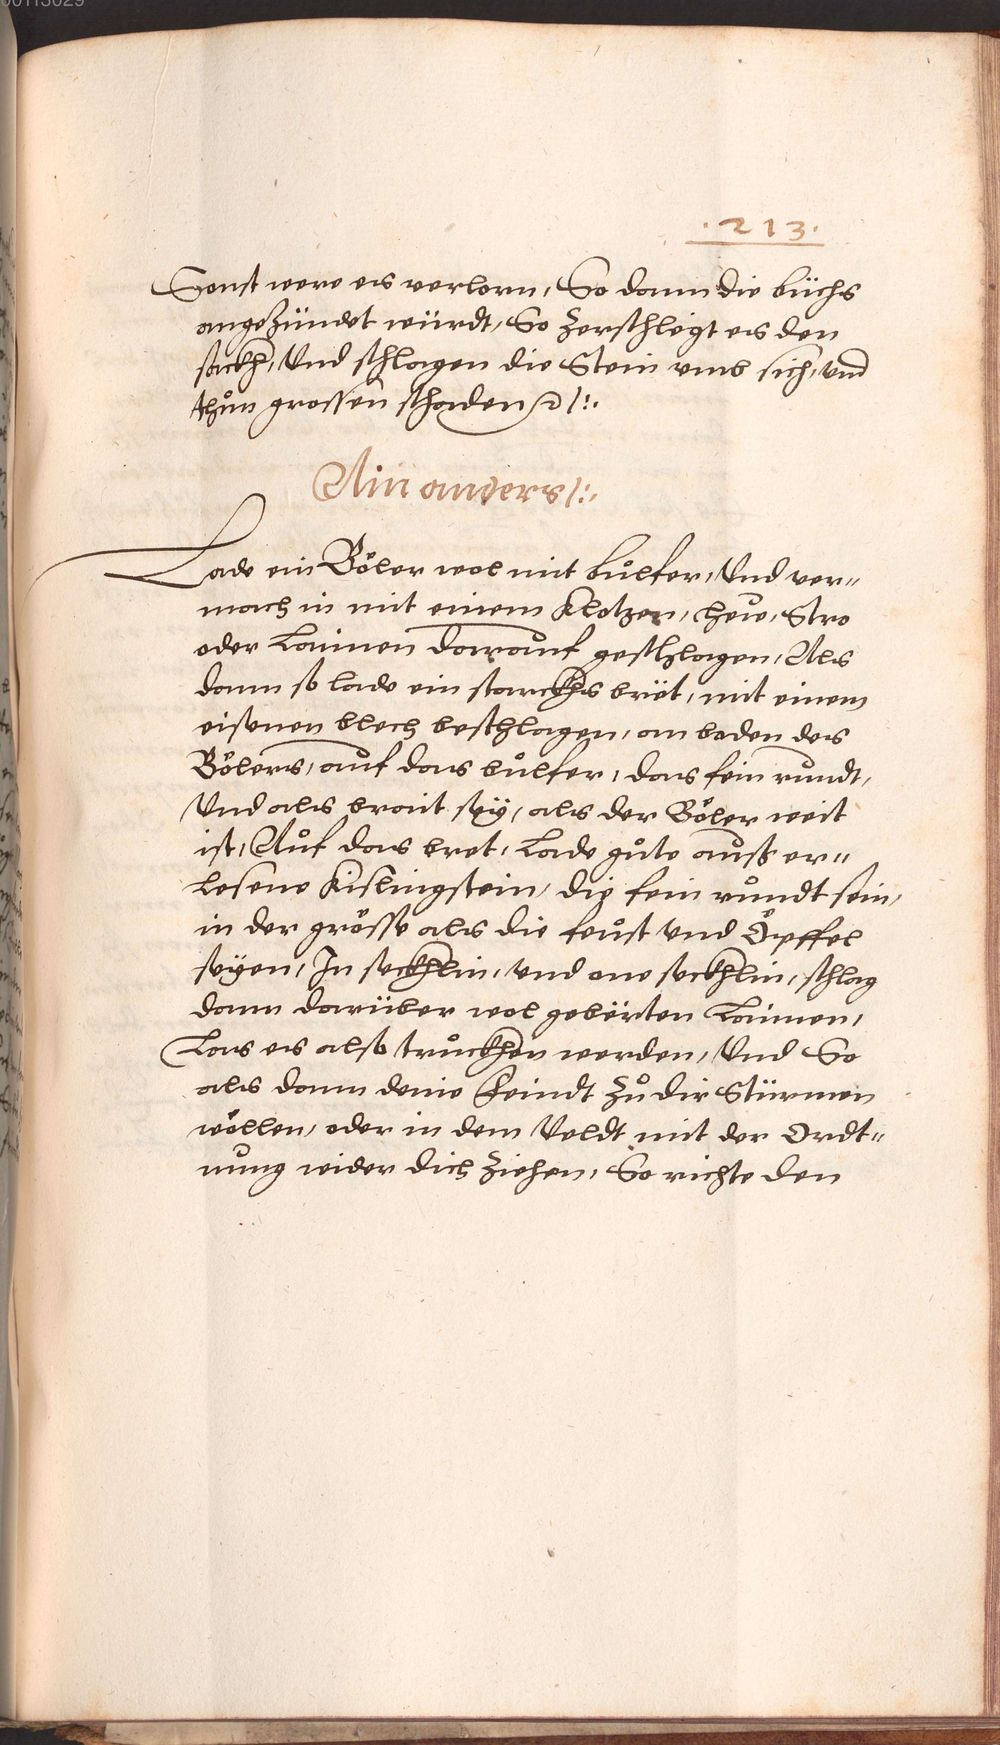 .213.
Sonst were es verlorn, So dann die büchs
angezündet würdt, So zerschlegt es den
sackh, Und schlagen die Stein umb sich, und
thůn grossen schaden /:.
Ain anders /:.
Lade ein Böler wol mit bulfer, Und ver„
mach in mit einem Klotzen, hew, Stro
oder Laimen darauf geschlagen, Als
dann so lade ein starckhs bret, mit einem
eisenen blech beschlagen, an boden des
Bölers, auf das bulfer, das fein rundt,
Und als brait seÿ, als der Böler weit
ist, Auf das bret, Lade gůte auß er„
lesene Kislingstein, die fein rundt sein,
in der grösse als die feust und Öpffel
seyen, In seckhlin, und one seckhlin, schlag
dann darüber wol geberten Laimen,
Las es also truckhen werden, Und So
als dann deine Feindt zů dir Stürmen
wöllen, oder in dem Veldt mit der Ordt„
nung wider dich ziehen, So richte den